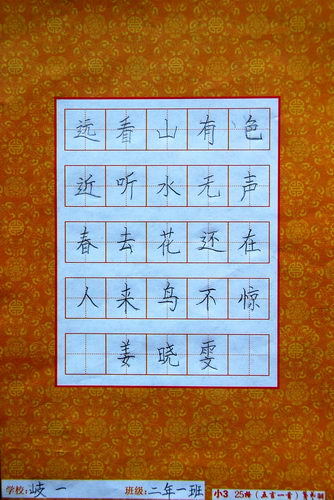 远看山有色
近听水无声
春去花还在
人来鸟不惊
姜晓雯
学校:岐一 班级:二年一班 小3 25格(五言一首)